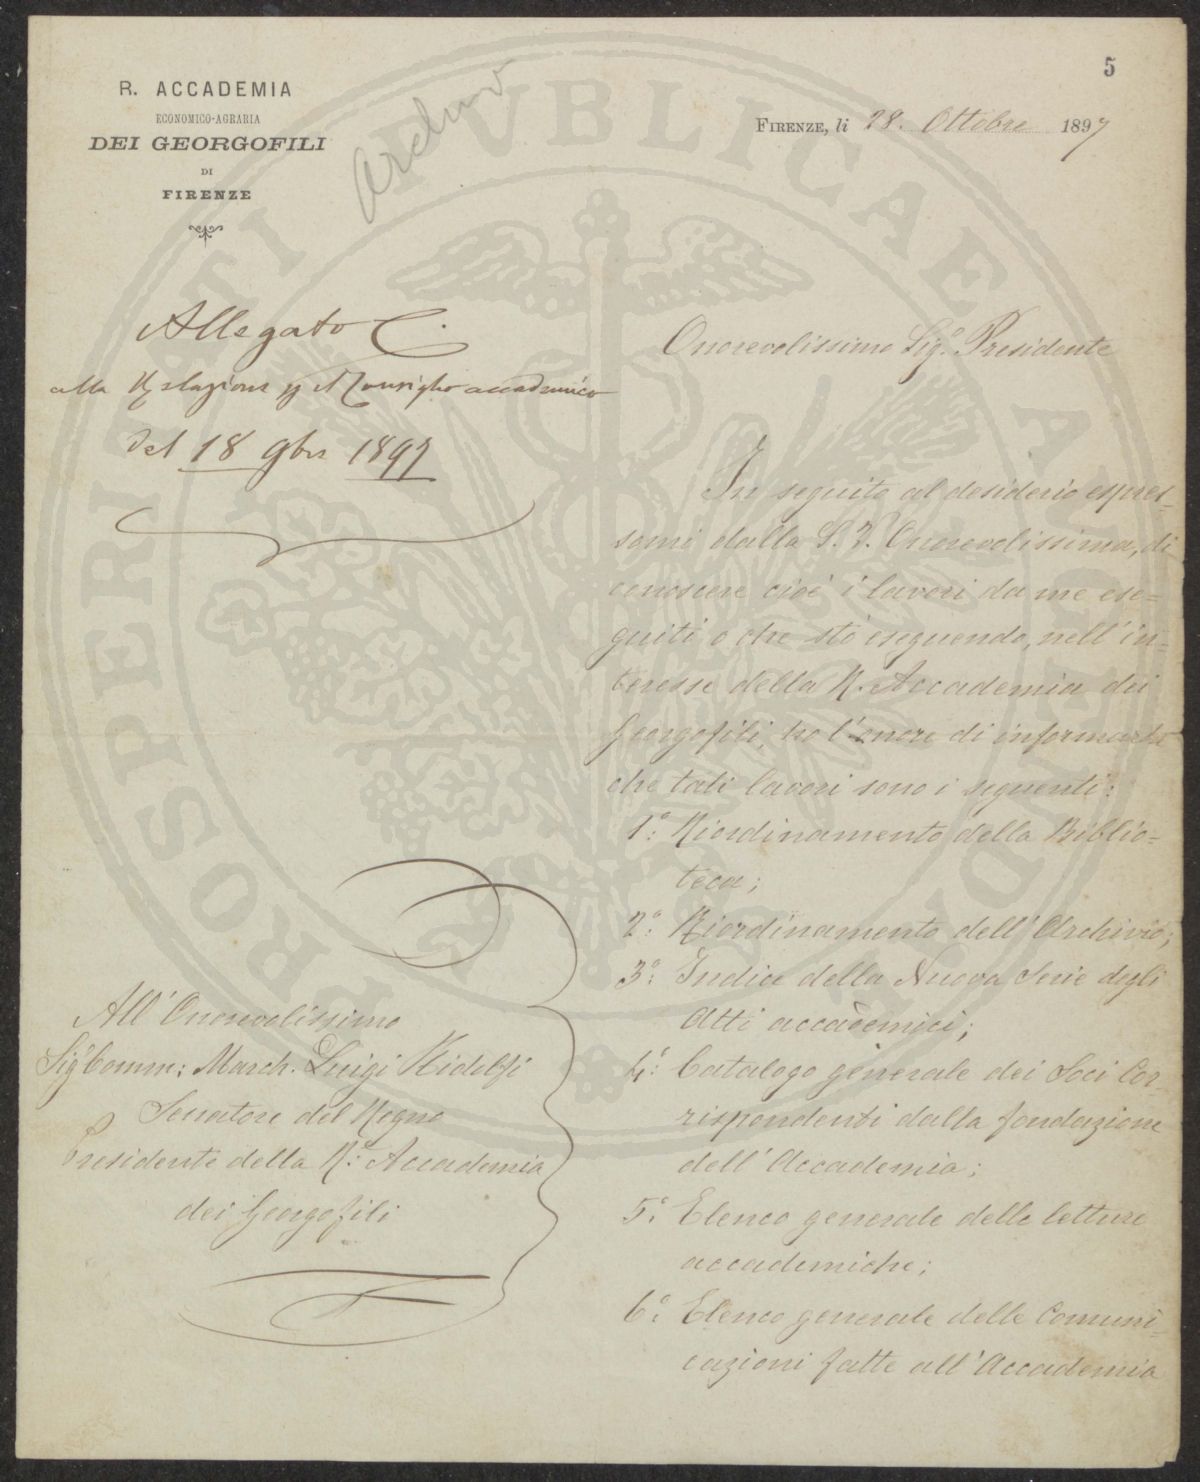 5
R. ACCADEMIA
ECONOMICO-AGRARIA
DEI GEORGOFILI
DI
FIRENZE
Archivio
FIRENZE, li 28. Ottobre 1897
Allegato C.
alla Relazione pel Consiglio accademico
del 18 9bre 1897
Onorevolissimo Sigr. Presidente
In seguito al desiderio espres-
somi dalla S. V. Onorevolissima, di
conoscere cioè i lavori da me ese=
guiti o che stò eseguendo, nell'in-
teresse della R. Accademia dei
Georgofili, ho l'onore di informarla
che tali lavori sono i seguenti:
1º: Riordinamento della Biblio=
teca;
2º: Riordinamento dell'Archivio;
3º: Indice della Nuova Serie degli
Atti accademici;
4º: Catalogo generale dei Soci Cor-
rispondenti dalla fondazione
dell'Accademia;
5º: Elenco generale delle letture
accademiche;
6º: Elenco generale delle Comuni-
cazioni fatte all'Accademia
All'Onorevolissimo
Sigr Comm: March. Luigi Ridolfi
Senatore del Regno
Presidente della R. Accademia
dei Georgofili
PROSPERITATI PUBLICAE AUGENDAE